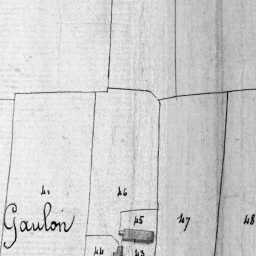 41 46
45
Gaulon 47 48
44 43